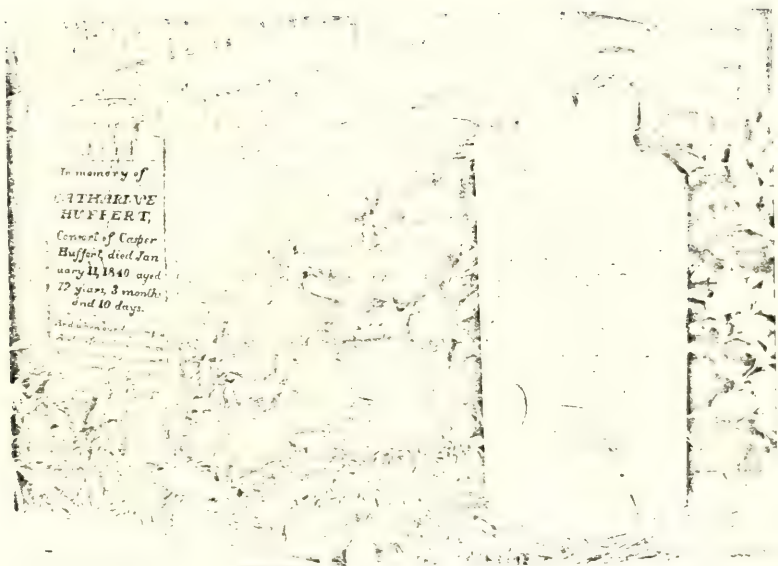 In memory of
CATHARINE
HUFFERT,
Consort of Casper
Huffert, died Jan
uary 11, 1840 aged
79 years, 3 months
and 10 days.